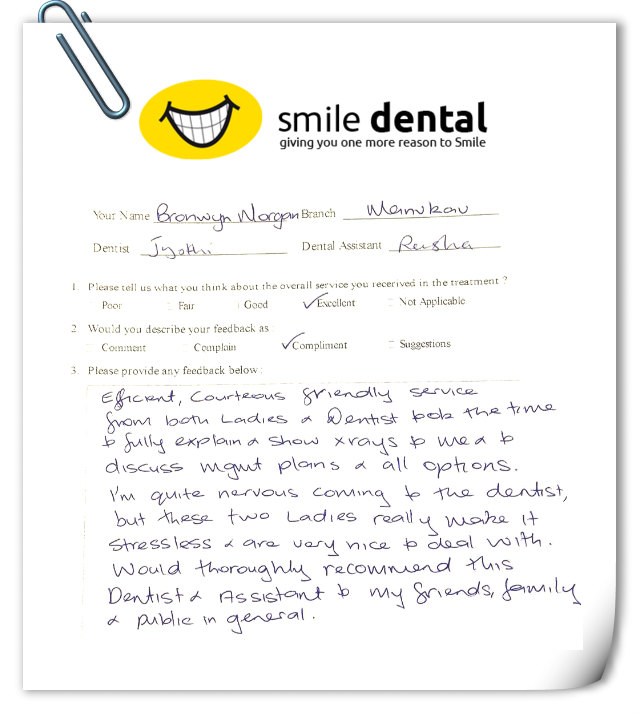 smile dental
giving you one more reason to Smile
Your Name Bronwyn Morgan Branch Manukau
Dentist Jyothi Dental Assistant Reisha
1. Please tell us what you think about the overall service you recerived in the treatment ?
Poor Fair Good ✓Excellent Not Applicable
2 Would you describe your feedback as
Comment Complain ✓Compliment Suggestions
3. Please provide any feedback below :
Efficient, courteous friendly service
from both Ladies & Dentist took the time
to fully explain & show xrays to me & to
discuss mgmt plans & all options.
I'm quite nervous coming to the dentist,
but these two Ladies really make it
stressless & are very nice to deal with.
Would thoroughly recommend this
Dentist & Assistant to my friends, family
& public in general.